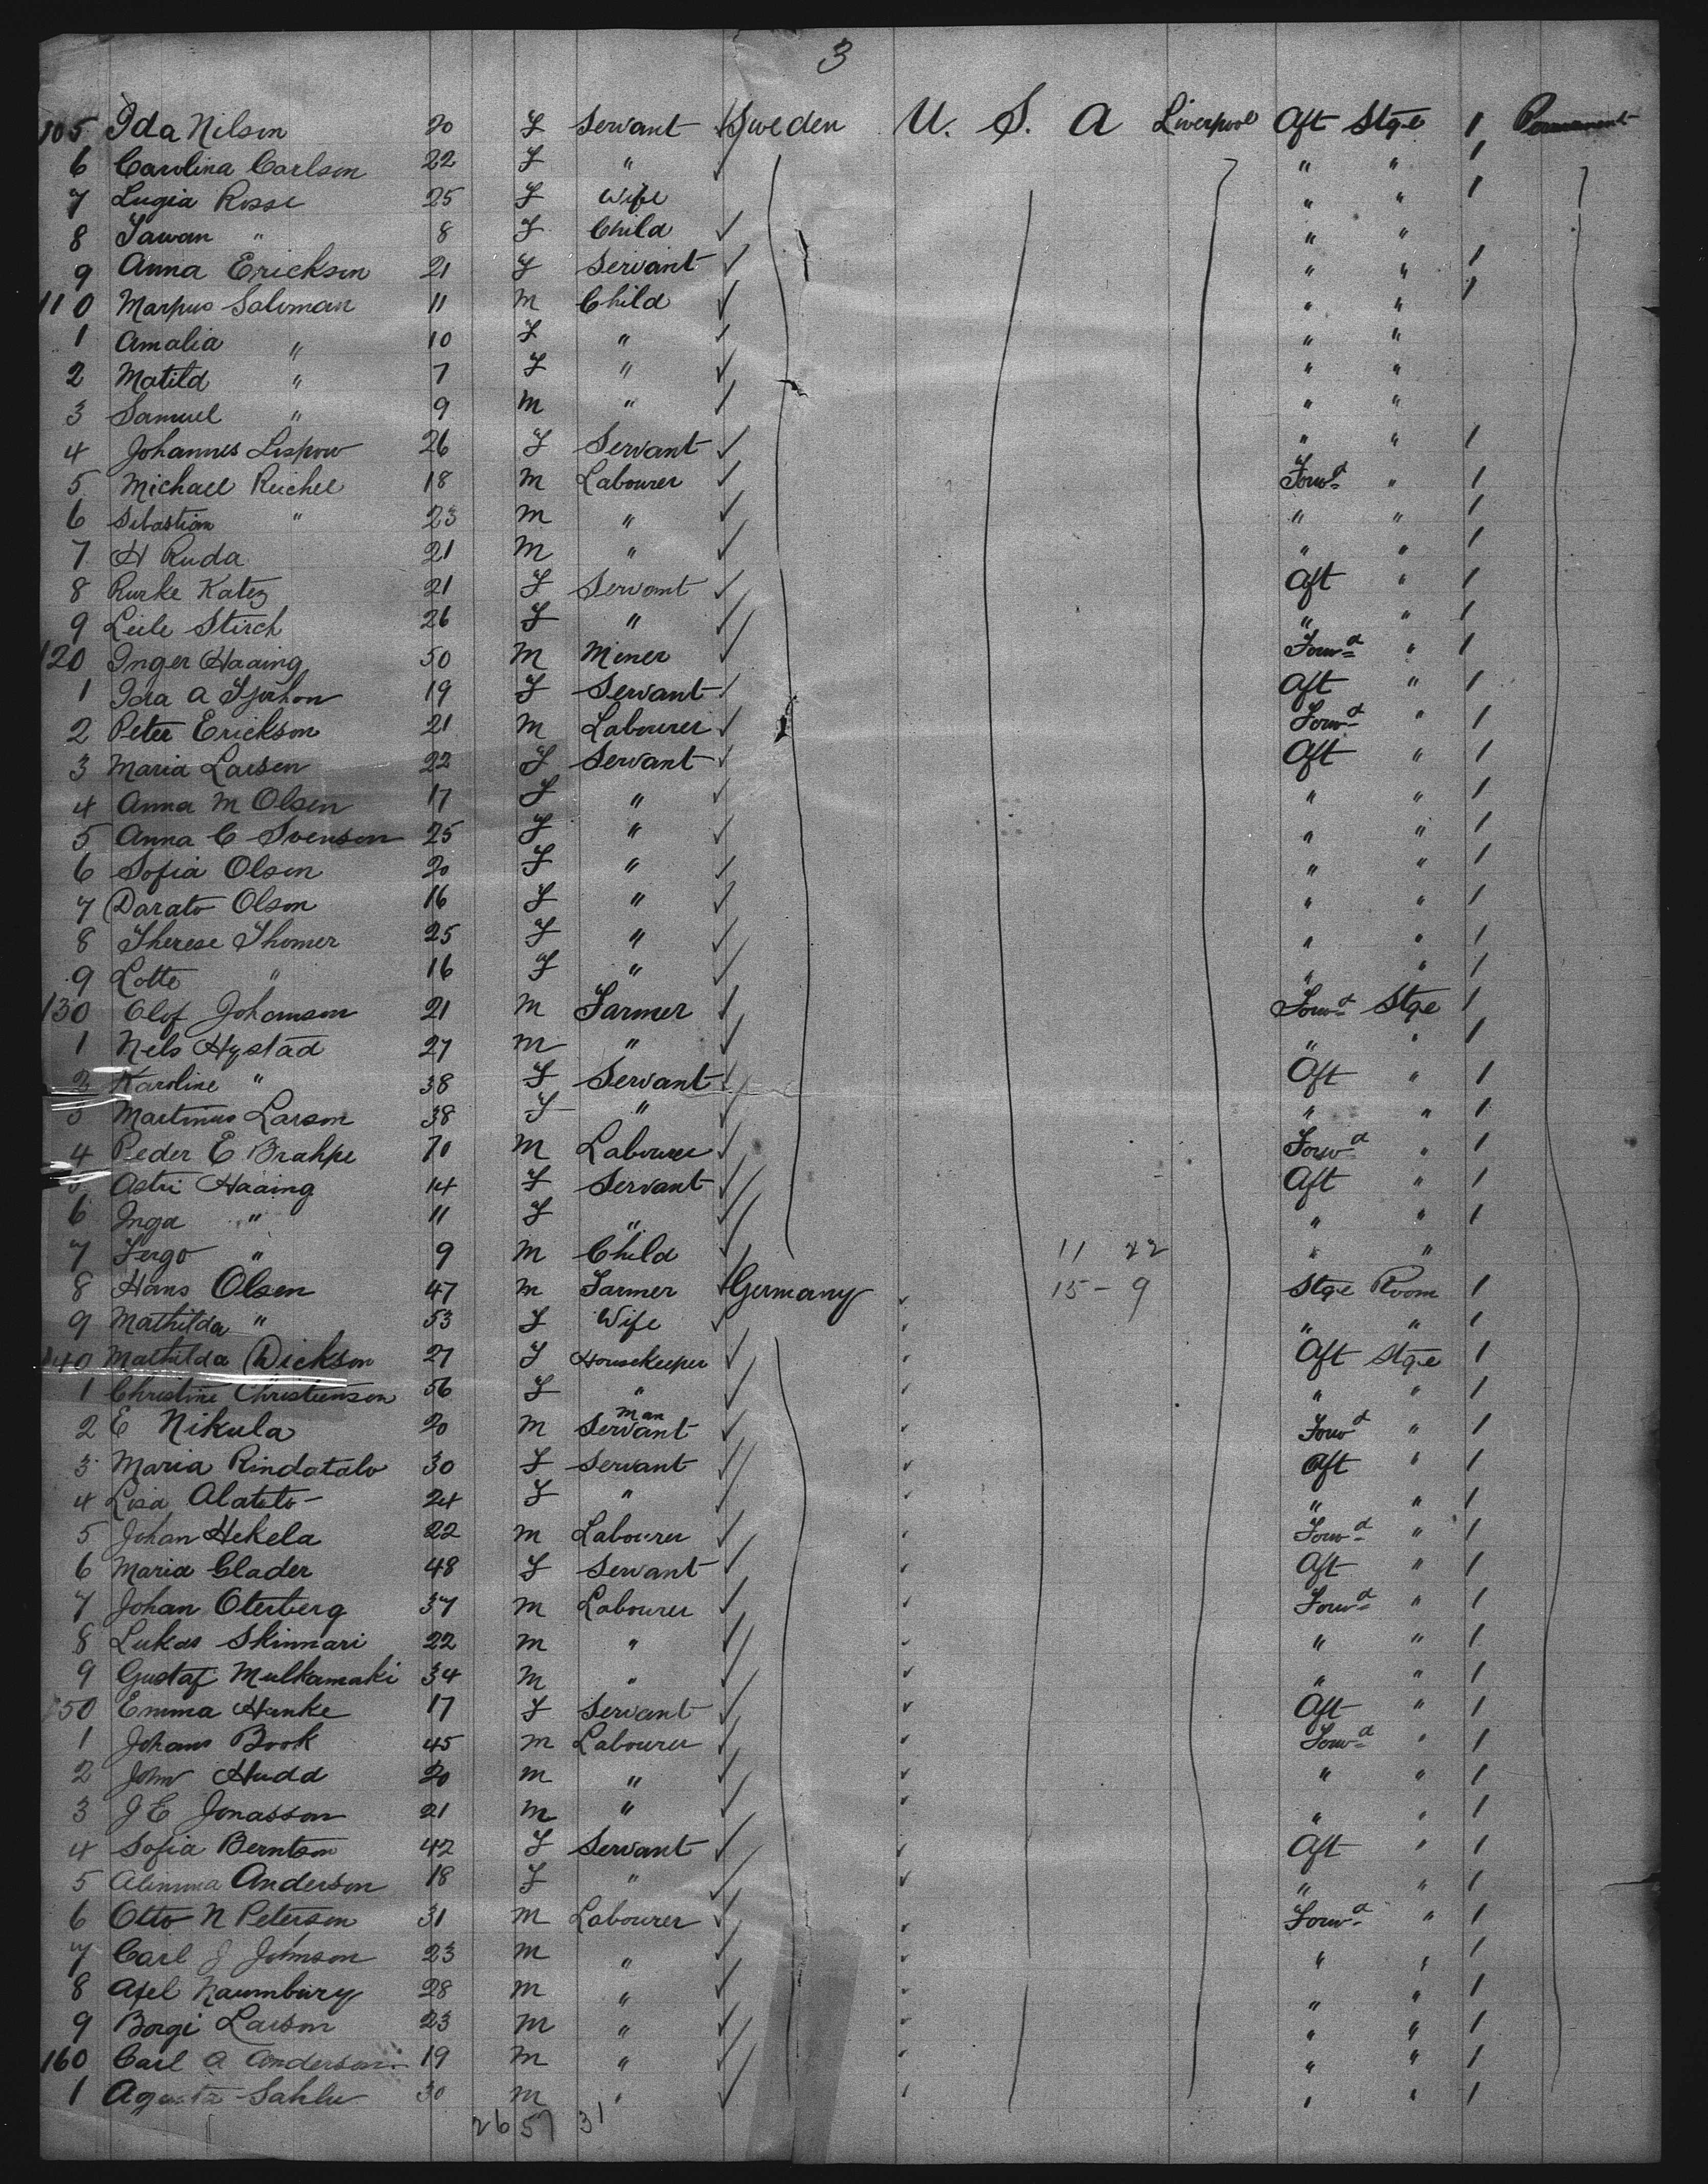 3
105 Ida Nilson 20 F Servant Sweden U. S. A Liverpool Aft Stge 1 Permanent
6 Carolina Carlson 22 F " " " 1
7 Lugia Rosse 25 F Wife " " 1
8 Tawan " 8 F Child " "
9 Anna Erickson 21 F Servant " " 1
110 Marpus Soliman 11 M Child " " 1
1 Amalia " 10 F " " "
2 Matild " 7 F " " "
3 Samuel " 9 M " " "
4 Johannes Lispow 26 F Servant " " 1
5 Michael Reichel 18 M Labourer Forwd " 1
6 Sebastian " 23 M " " " 1
7 H Ruda 21 M " " " 1
8 Rurke Katez 21 F Servant Aft " 1
9 Leile Stirch 26 F " " " 1
120 Inger Haaing 50 M Miner Forwd " 1
1 Ida A 19 F Servant Aft " 1
2 Peter Erickson 21 M Labourer Forwd " 1
3 Maria Larsen 22 F Servant Aft " 1
4 Anna M Olsen 17 F " " " 1
5 Anna C Svenson 25 F " " " 1
6 Sofia Olsen 20 F " " " 1
7 Darato Olson 16 F " " " 1
8 Therese Thomer 25 F " " " 1
9 Lotte " 16 F " " " 1
130 Olof Johanson 21 M Farmer Forwd Stge 1
1 Nels Hystad 27 M " " " 1
2 Karoline " 38 F Servant Aft " 1
3 Martinus Larson 38 F " " " 1
4 Peder E Brahpe 70 M Labourer Forwd " 1
5 Astri Haaing 14 F Servant Aft " 1
6 Inga " 11 F " " " 1
7 Fergo " 9 M Child 11 22 " "
8 Hans Olsen 47 M Farmer Germany 15 - 9 Stge Room 1
9 Mathilda " 53 F Wife " " 1
140 Mathilda Dickson 27 F Housekeeper Aft Stge 1
1 Christine Christienson 56 F " " " 1
2 E Nikula 20 M Man Servant Forwd " 1
3 Maria Rindatalo 30 F Servant Aft " 1
4 Lisa Alatelo 24 F " " " 1
5 Johan Hekela 22 M Labourer Forwd " 1
6 Maria Clader 48 F Servant Aft " 1
7 Johan Oterberg 37 M Labourer Forwd " 1
8 Lukas Skinnari 22 M " " " 1
9 Gustaf Mulkamaki 34 M " " " 1
150 Emma Hanke 17 F Servant Aft " 1
1 Johans Book 45 M Labourer Forwd " 1
2 John Hudd 20 M " " " 1
3 J E Jonasson 21 M " " " 1
4 Sofia Berntson 42 F Servant Aft " 1
5 Anderson 18 F " " " 1
6 Otto N Peterson 31 M Labourer Forwd " 1
7 Carl J Johnson 23 M " " " 1
8 Axel Naumburg 28 M " " " 1
9 Borgi Larson 23 M " " " 1
160 Carl A Anderson 19 M " " " 1
1 Agusta Sahlu 30 M " " " 1
26 57 31